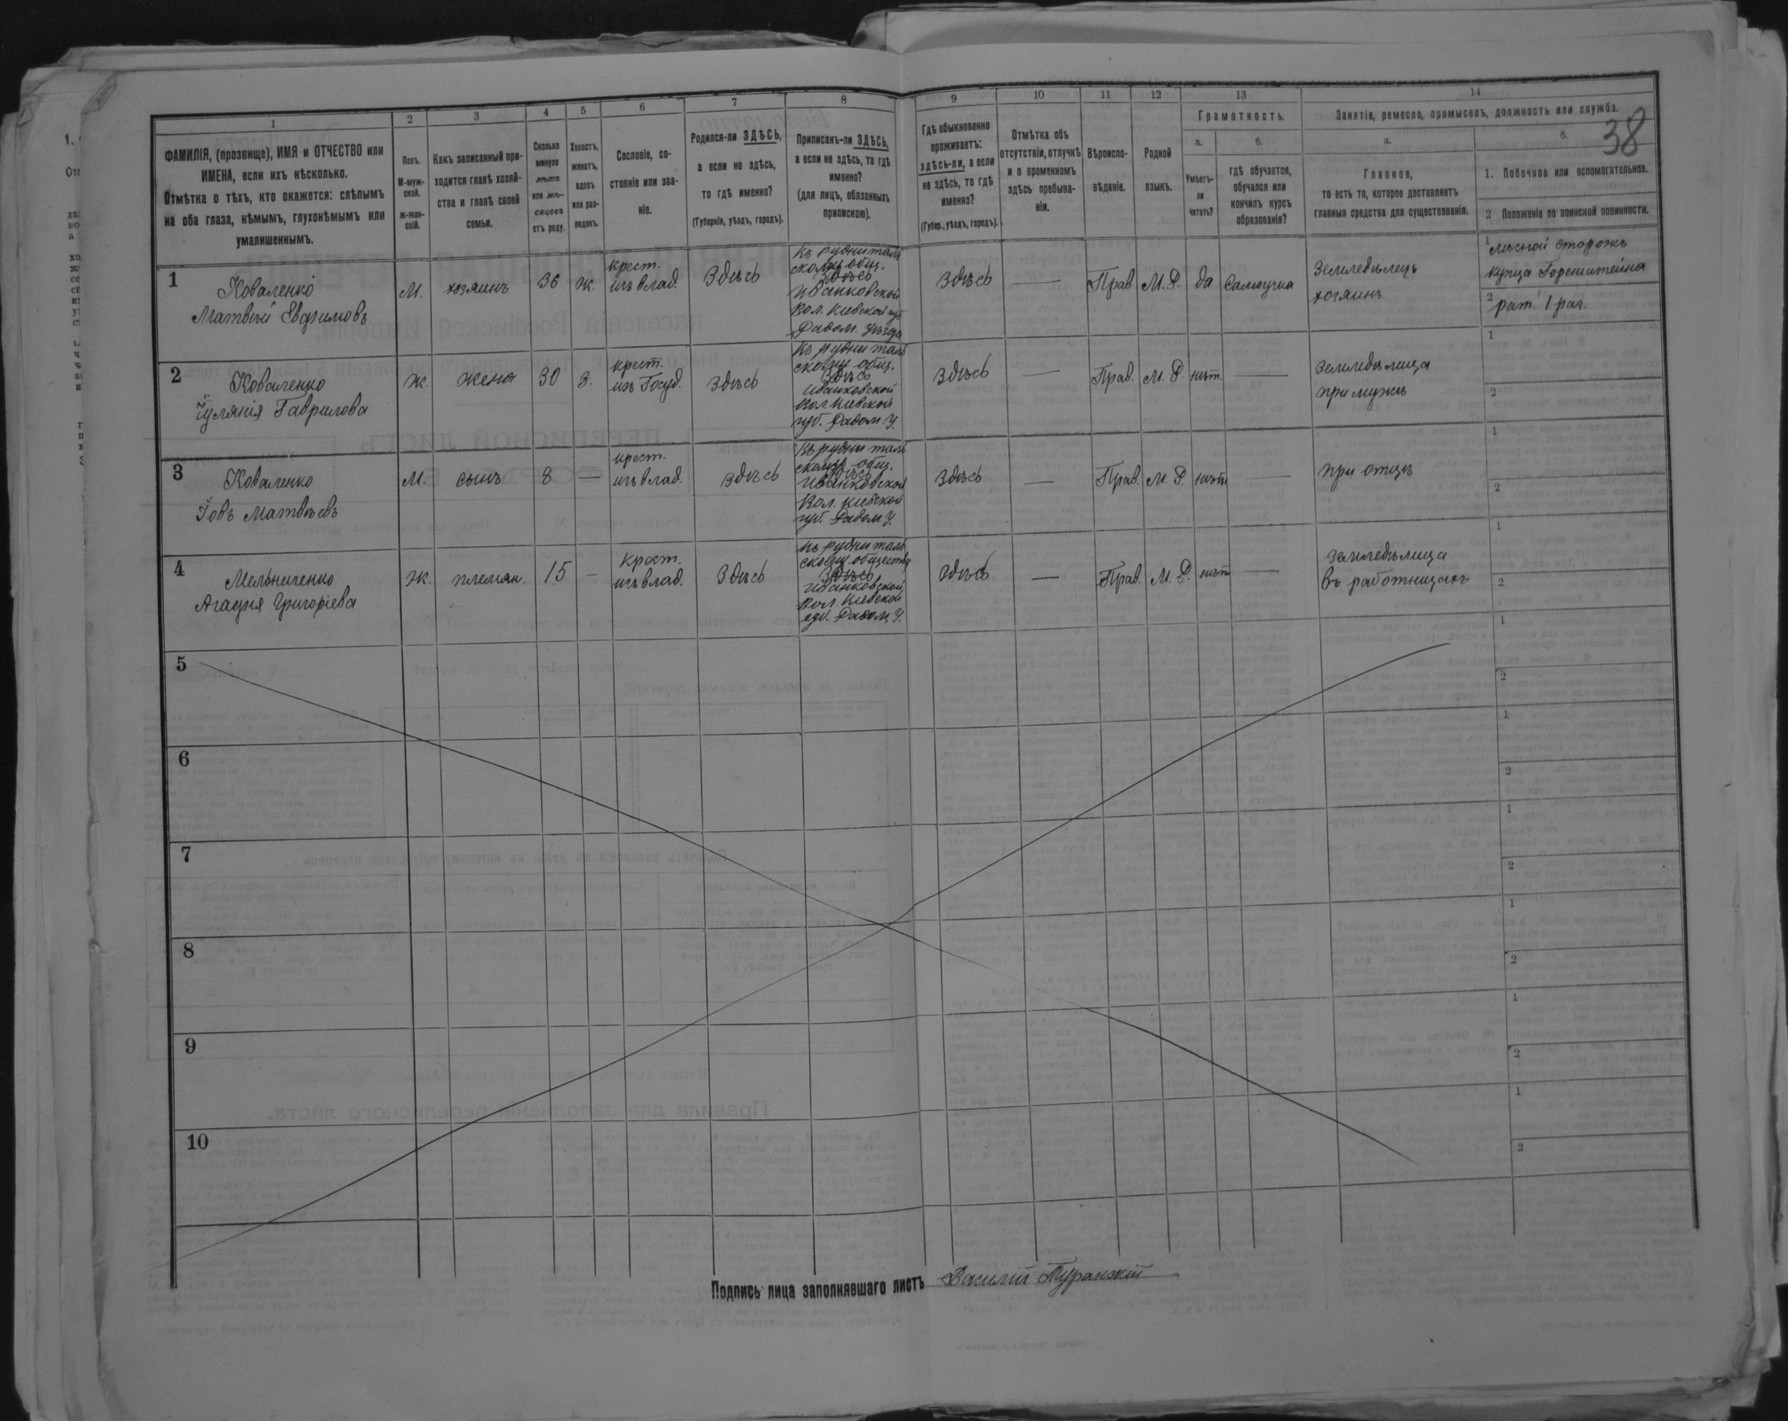 38
1 2 3 4 5 6 7 8 9 10 11 12 13 14
ФАМИЛІЯ, (прозвище), ИМЯ и ОТЧЕСТВО или
ИМЕНА, если ихъ нѣсколько.
Отмѣтка о тѣхъ, кто окажется: слѣпымъ
на оба глаза, нѣмымъ, глухонѣмымъ или
умалишеннымъ.
Полъ.
М-муж-
ской.
Ж-жен-
скій.
Какъ записанный при-
ходится главѣ хозяй-
ства и главѣ своей
семьи.
Сколько
минуло
лѣтъ
или мѣ-
сяцевъ
отъ роду.
Холостъ,
женатъ,
вдовъ
или раз-
веденъ.
Сословіе, со-
стояніе или зва-
ніе.
Родился-ли ЗДѢСЬ,
а если не здѣсь,
то гдѣ именно?
(Губернія, уѣздъ, городъ).
Приписанъ-ли ЗДѢСЬ,
а если не здѣсь, то гдѣ
именно?
(для лицъ, обязанныхъ
припискою).
Гдѣ обыкновенно
проживаетъ:
здѣсь-ли, а если
не здѣсь, то гдѣ
именно?
(Губер., уѣздъ, городъ).
Отмѣтка объ
отсутствіи, отлучкѣ
и о временномъ
здѣсь пребыва-
ніи.
Вѣроиспо-
вѣданіе.
Родной
языкъ.
Грамотность.
а.
Умѣетъ-
ли
читать?
б.
гдѣ обучается,
обучался или
кончилъ курсъ
образованія?
Занятіе, ремесло, промыселъ, должность или служба.
а.
Главное,
то есть то, которое доставляетъ
главныя средства для существованія.
б.
1. Побочное или вспомогательное.
2 Положеніе по воинской повинности.
1
Коваленко
Матвѣй Евфимовъ
М.
хозяинъ
36
ж.
крест.
изъ влад.
Здѣсь
Къ рудниталь
скому общ.
Здѣсь
Иванковской
Вол. Кіевской губ
Радом. уѣзда
Здѣсь
—
Прав
М. Р.
да
Самоучка
Земледѣлецъ
хозяинъ
1
лѣсной сторожъ
купца Горенштейна
2
рат. 1 раз.
2
Коваленко
Іуліянія Гаврилова
Ж.
жена
30
з.
крест.
изъ Госуд.
Здѣсь
Къ рудниталь
скому общ.
Здѣсь
Иванковской
Вол. Кіевской
губ. Радом. У.
Здѣсь
—
Прав.
М. Р.
нѣт
—
Земледѣлица
при мужѣ
1
2
3
Коваленко
Іовъ Матвѣевъ
М.
сынъ
8
—
крест.
изъ влад.
Здѣсь
Къ рудниталь
скому общ.
Здѣсь
Иванковской
Вол. Кіевской
губ. Радом. У.
Здѣсь
—
Прав.
М. Р.
нѣт
—
при отцѣ
1
2
4
Мельниченко
Агафія Григоріева
Ж.
племян.
15
—
крест.
изъ влад.
Здѣсь
Къ рудниталь
скому обществу
Здѣсь
Иванковской
Вол. Кіевской
губ. Радом. У.
Здѣсь
—
Прав.
М. Р.
нѣт
—
Земледѣлица
въ работницахъ
1
2
5
1
2
6
1
2
7
1
2
8
1
2
9
1
2
10
1
2
Подпись лица заполнявшаго листъ Василій